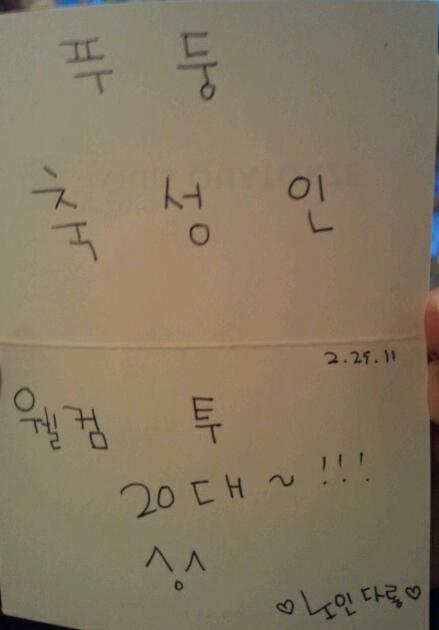 푸 둥
축 성 인
2.25.11
웰컴 투
20대 ~ !!!
^o^
♡노인다롱♡